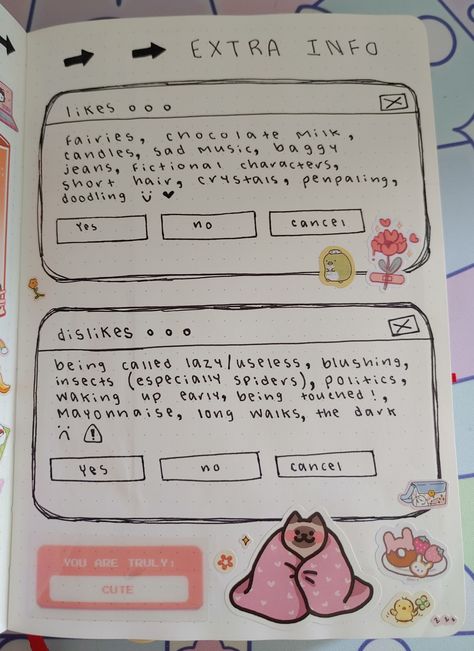 EXTRA INFO
likes o o o
fairies, chocolate milk,
candles, sad music, baggy
jeans, fictional characters,
short hair, crystals, penpaling,
doodling
yes no cancel
dislikes o o o
being called lazy/useless, blushing,
insects (especially spiders), politics,
waking up early, being touched!,
mayonnaise, long walks, the dark
yes no cancel
YOU ARE TRULY:
CUTE